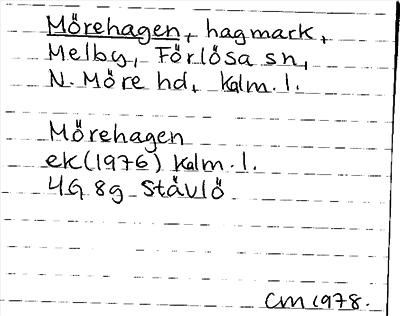 Mörehagen, hagmark,
Melby, Förlösa sn,
N. Möre hd, Kalm. l.
Mörehagen
ek (1976) Kalm. l.
4G 8g Stävlö
CM 1978.